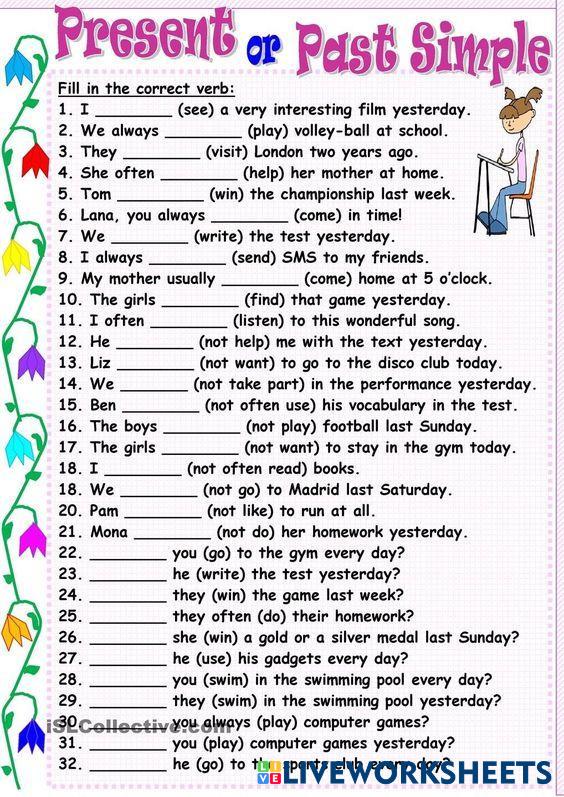 Present or Past Simple
Fill in the correct verb:
1. I ________ (see) a very interesting film yesterday.
2. We always ________ (play) volley-ball at school.
3. They ________ (visit) London two years ago.
4. She often ________ (help) her mother at home.
5. Tom _________ (win) the championship last week.
6. Lana, you always ________ (come) in time!
7. We ________ (write) the test yesterday.
8. I always ________ (send) SMS to my friends.
9. My mother usually ________ (come) home at 5 o'clock.
10. The girls ________ (find) that game yesterday.
11. I often ________ (listen) to this wonderful song.
12. He ________ (not help) me with the text yesterday.
13. Liz ________ (not want) to go to the disco club today.
14. We _______ (not take part) in the performance yesterday.
15. Ben ________ (not often use) his vocabulary in the test.
16. The boys ________ (not play) football last Sunday.
17. The girls ________ (not want) to stay in the gym today.
18. I ________ (not often read) books.
18. We ________ (not go) to Madrid last Saturday.
20. Pam ________ (not like) to run at all.
21. Mona _______ (not do) her homework yesterday.
22. ________ you (go) to the gym every day?
23. ________ he (write) the test yesterday?
24. ________ they (win) the game last week?
25. ________ they often (do) their homework?
26. ________ she (win) a gold or a silver medal last Sunday?
27. ________ he (use) his gadgets every day?
28. ________ you (swim) in the swimming pool every day?
29. ________ they (swim) in the swimming pool yesterday?
30. ________ you always (play) computer games?
iSLCollective.com
31. ________ you (play) computer games yesterday?
32. ________ he (go) to the sports club every day?
LIVE LIVEWORKSHEETS